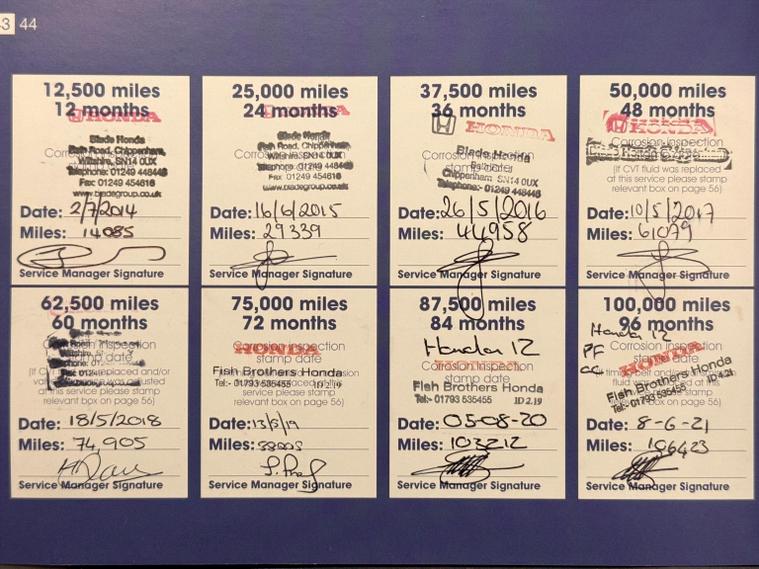 3 44
12,500 miles
12 months
HONDA
Blade Honda
Bath Road, Chippenham,
Wiltshire, SN14 0UX
Telephone: 01249 448448
Fax: 01249 454616
www.bladegroup.co.uk
Date: 2/7/2014
Miles: 14085
Service Manager Signature
25,000 miles
24 months
HONDA
Blade Honda
Bath Road, Chippenham,
Wiltshire, SN14 0UX
Telephone: 01249 448448
Fax: 01249 454616
www.bladegroup.co.uk
Date: 16/6/2015
Miles: 29339
Service Manager Signature
37,500 miles
36 months
HONDA
Corrosion inspection
Blade Honda
Bath Road
Chippenham SN14 0UX
Telephone:- 01249 448448
Date: 26/5/2016
Miles: 44958
Service Manager Signature
50,000 miles
48 months
HONDA
Corrosion inspection
(If CVT fluid was replaced
at this service please stamp
relevant box on page 56)
Date: 10/5/2017
Miles: 61079
Service Manager Signature
62,500 miles
60 months
Corrosion inspection
stamp date
at this service please stamp
relevant box on page 56)
Date: 18/5/2018
Miles: 74,905
Service Manager Signature
75,000 miles
72 months
Corrosion inspection
HONDA
stamp date
Fish Brothers Honda
Tel:- 01793 535455 ID 2.19
at this service please stamp
relevant box on page 56)
Date: 13/5/19
Miles:
Service Manager Signature
87,500 miles
84 months
Honda 12
Corrosion inspection
HONDA
stamp date
Fish Brothers Honda
Tel:- 01793 535455 ID 2.19
Date: 05-08-20
Miles: 103212
Service Manager Signature
100,000 miles
96 months
Honda 12
PF
Corrosion inspection
stamp date
HONDA
Fish Brothers Honda
Tel:- 01793 535455 ID 4.21
relevant box on page 56)
Date: 8-6-21
Miles: 106423
Service Manager Signature